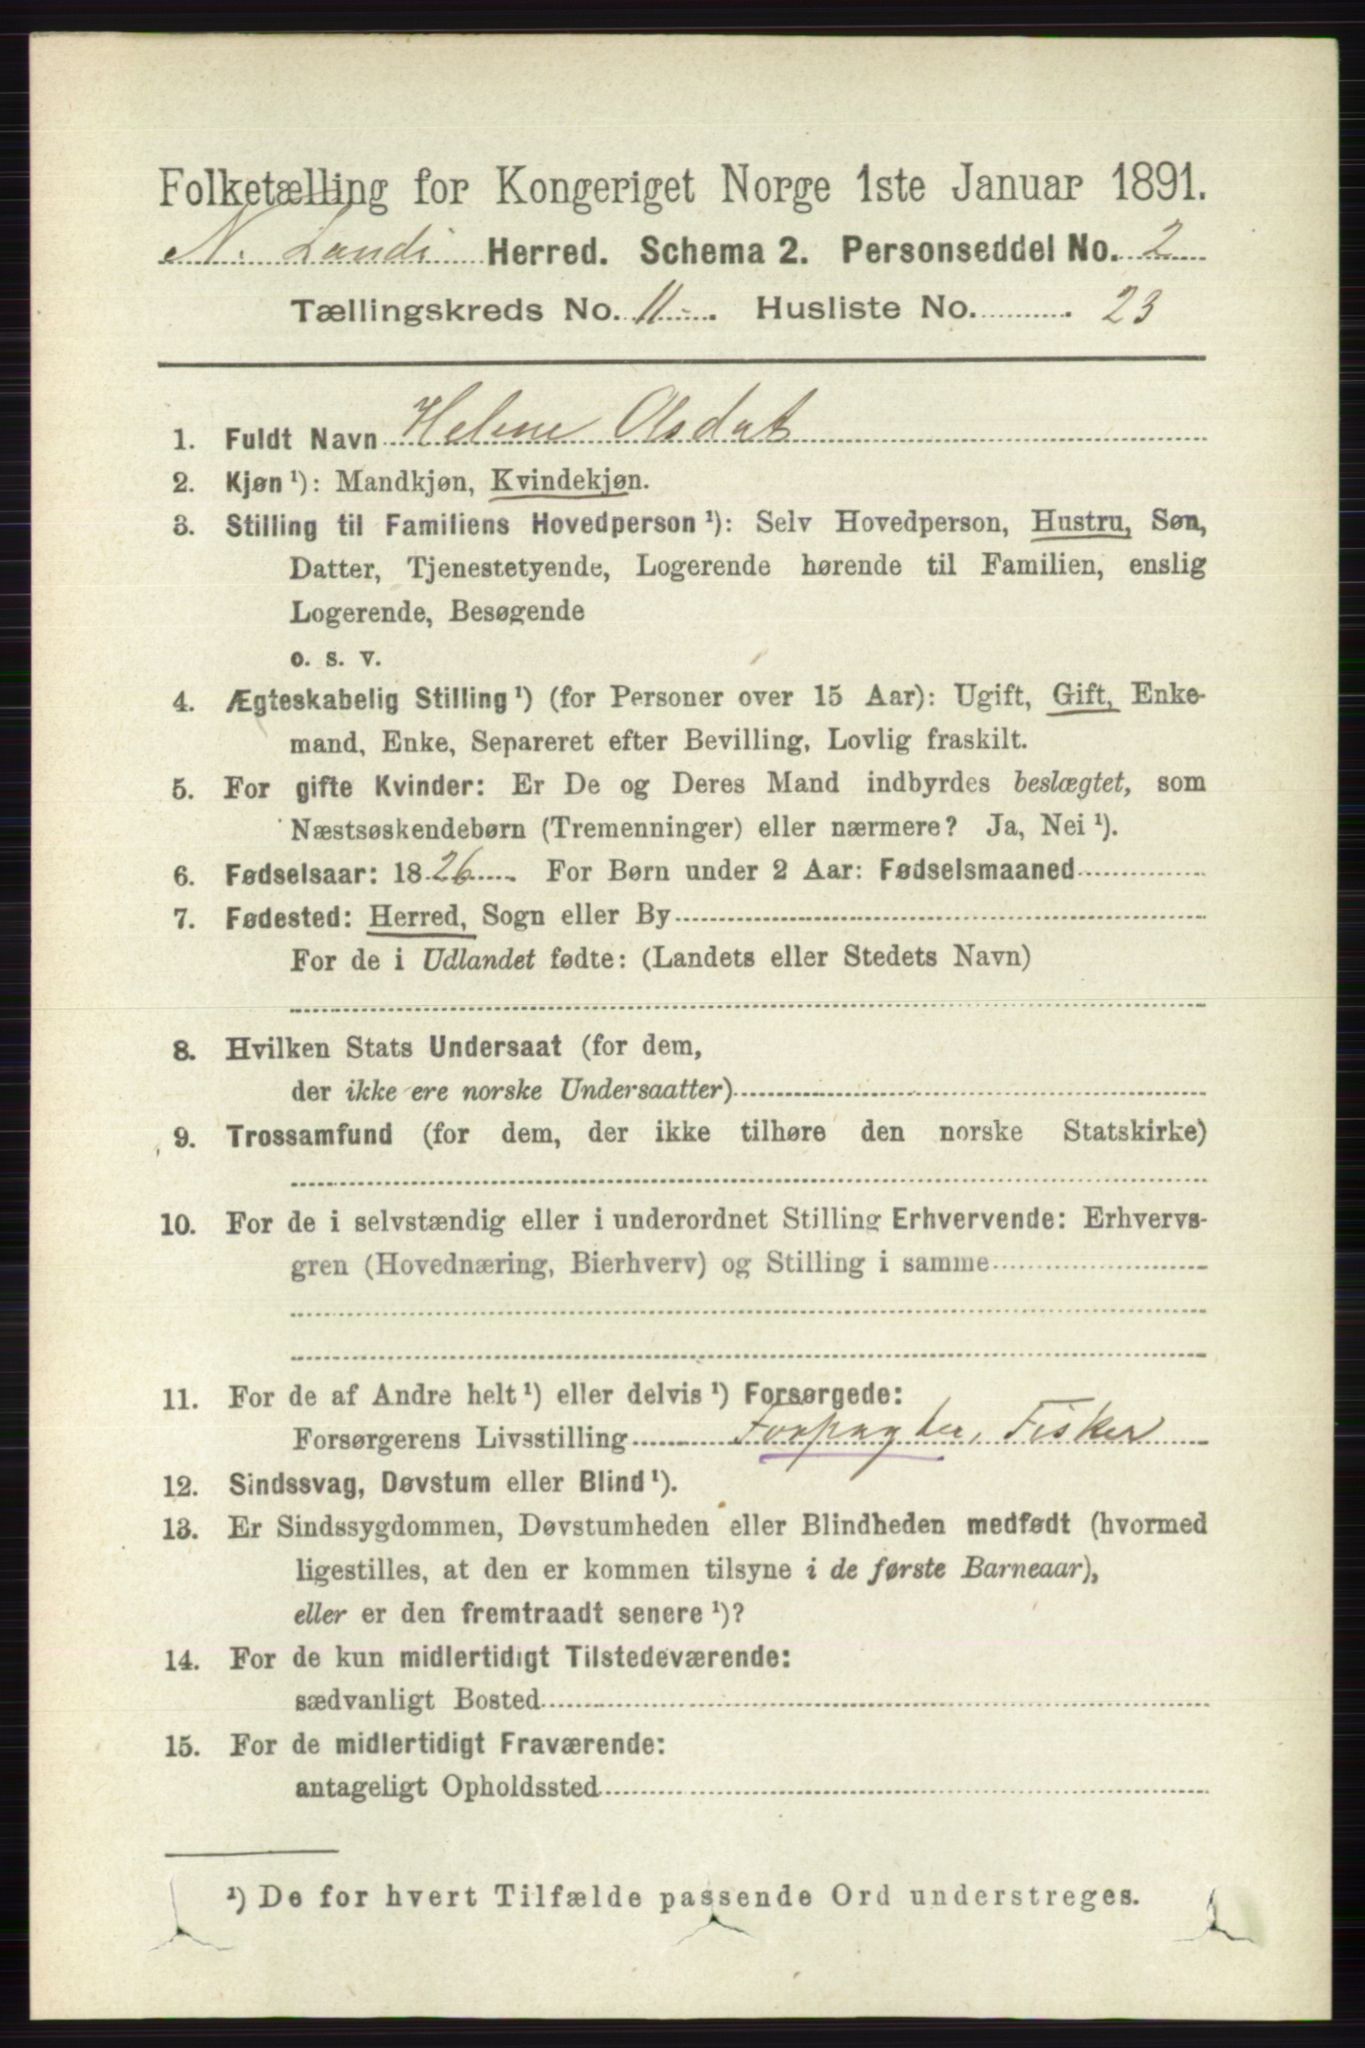 Folketælling for Kongeriget Norge 1ste Januar 1891.
N. Landi Herred. Schema 2. Personseddel No. 2
Tællingskreds No. 11. Husliste No. 23
1. Fuldt Navn Helene Olsdat
2. Kjøn ¹): Mandkjøn, Kvindekjøn.
3. Stilling til Familiens Hovedperson ¹): Selv Hovedperson, Hustru, Søn,
Datter, Tjenestetyende, Logerende hørende til Familien, enslig
Logerende, Besøgende
o. s. v.
4. Ægteskabelig Stilling ¹) (for Personer over 15 Aar): Ugift, Gift, Enke-
mand, Enke, Separeret efter Bevilling, Lovlig fraskilt.
5. For gifte Kvinder: Er De og Deres Mand indbyrdes beslægtet, som
Næstsøskendebørn (Tremenninger) eller nærmere? Ja, Nei ¹).
6. Fødselsaar: 1826. For Børn under 2 Aar: Fødselsmaaned
7. Fødested: Herred, Sogn eller By
For de i Udlandet fødte: (Landets eller Stedets Navn)
8. Hvilken Stats Undersaat (for dem,
der ikke ere norske Undersaatter)
9. Trossamfund (for dem, der ikke tilhøre den norske Statskirke)
10. For de i selvstændig eller i underordnet Stilling Erhvervende: Erhvervs-
gren (Hovednæring, Bierhverv) og Stilling i samme
11. For de af Andre helt ¹) eller delvis ¹) Forsørgede:
Forsørgerens Livsstilling Forpagter, Fisker
12. Sindssvag, Døvstum eller Blind ¹).
13. Er Sindssygdommen, Døvstumheden eller Blindheden medfødt (hvormed
ligestilles, at den er kommen tilsyne i de første Barneaar),
eller er den fremtraadt senere ¹)?
14. For de kun midlertidigt Tilstedeværende:
sædvanligt Bosted
15. For de midlertidigt Fraværende:
antageligt Opholdssted
¹) De for hvert Tilfælde passende Ord understreges.